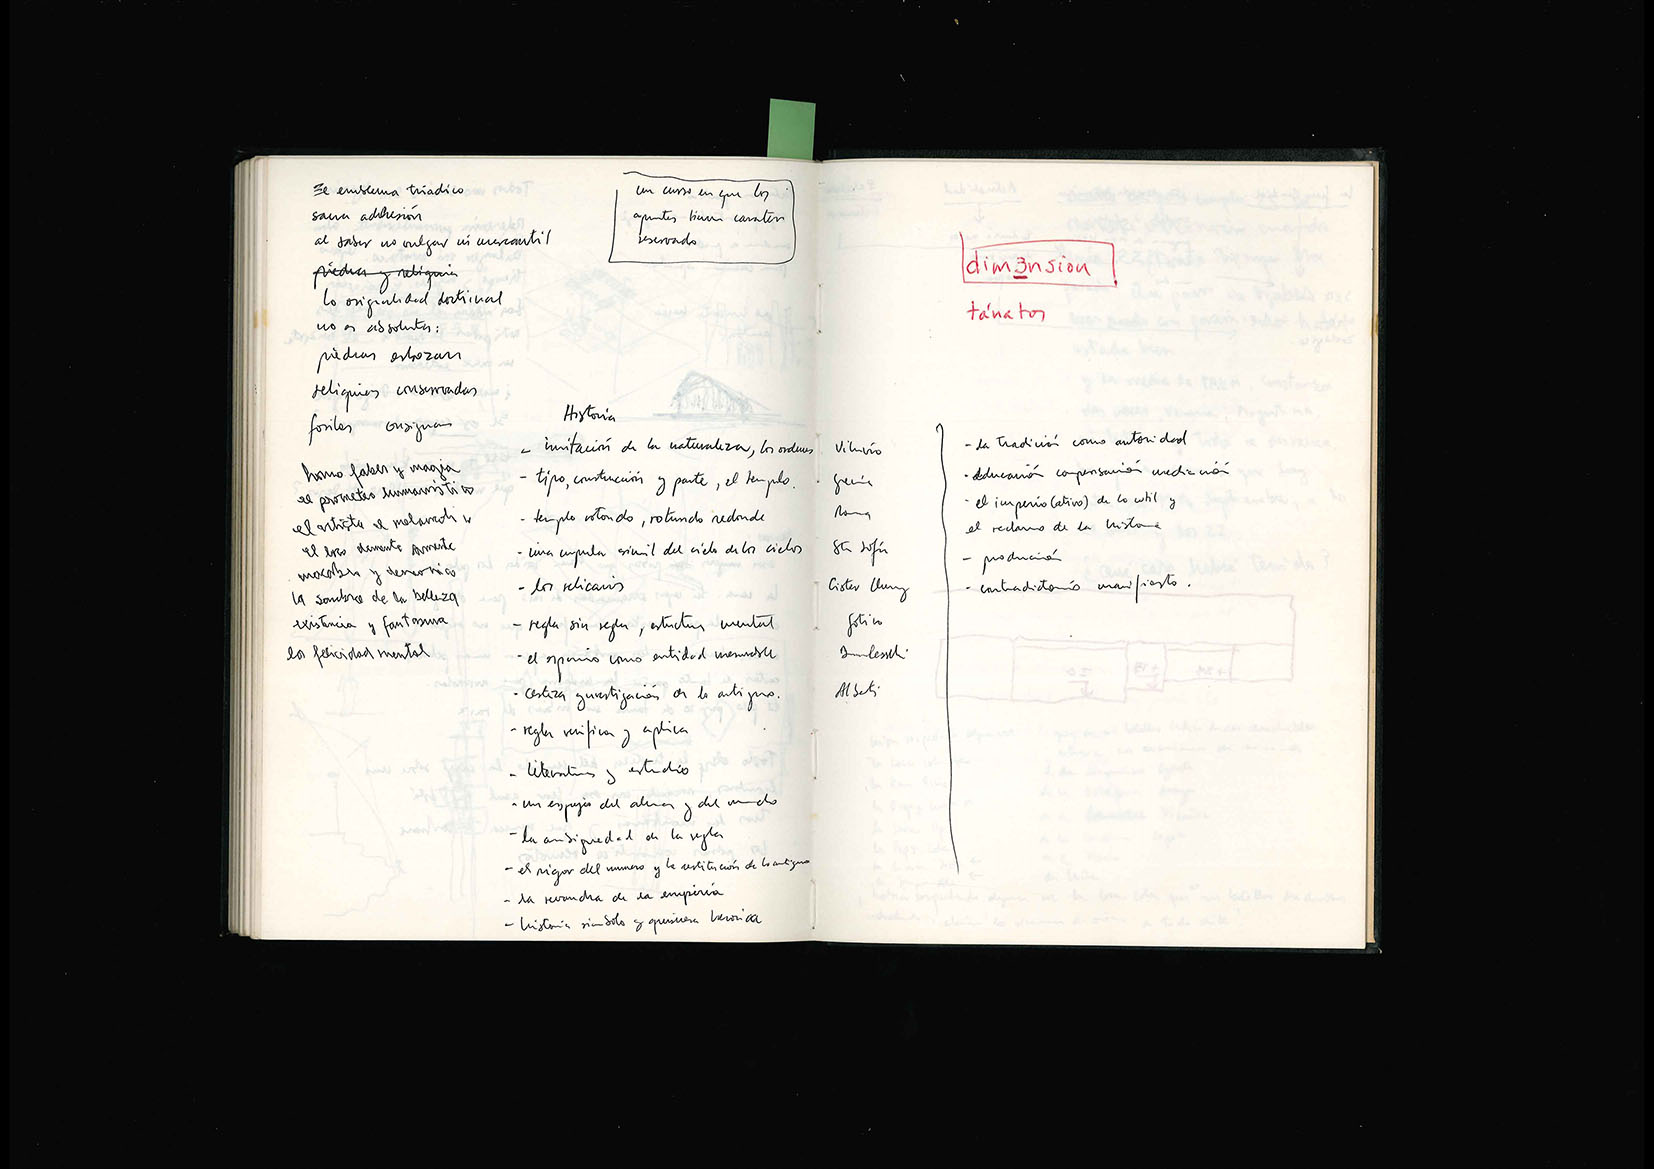 emblema triádico
sacra adhesión
al saber no vulgar ni mercantil
piedras y reliquias
la originalidad doctrinal
no es absoluta:
piedras esbozan
reliquias conservadas
fósiles consignan
homo faber y magia
el prometeo humanístico
el artista el
el loco demente
macabra y demoníaco
la sombra de la belleza
existencia y fantasma
la felicidad mental
un curso en que los
apuntes tienen carácter
reservado
Historia
- imitación de la naturaleza, los ordenes Vitruvio
- tipo, construcción y parte, el templo. Grecia
- templo rotondo, rotundo redondo Roma
- una cupula simil del cielo de los cielos Sta Sofía
- los relicarios Cister Cluny
- regla sin regla, estructura mental Gótico
- el espacio como entidad mensurable Brunelleschi
- certeza y investigación de lo antiguo. Alberti
- regla verifica y aplica
- literatura y estudio
- un espejo del alma y del mundo
- la ambiguedad de la regla
- el rigor del numero y la restitución de lo antiguo
- la revancha de la empiria
- historia simbolo y quimera barroca
dim3nsion
tánatos
- la tradición como autoridad
- educación compensación mediación
- el imperio(ativo) de lo util y
el reclamo de la historia
- producción
- contradictorio manifiesto.